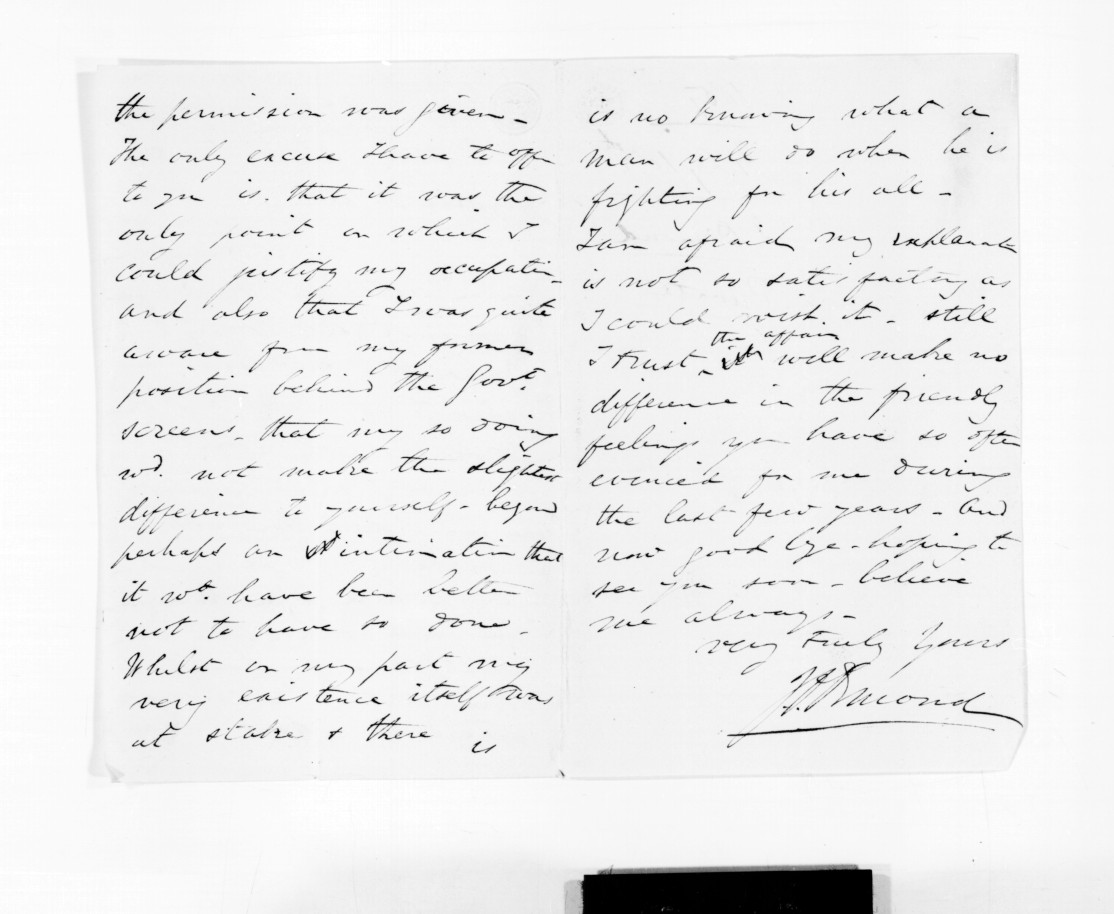 the permission was given -
The only excuse I have to offer
to you is. that it was the
only point on which I
could justify my occupation -
and also that I was quite
aware from my former
position behind the Govt.
screens - that my so doing
wd. not make the slightest
difference to yourself - beyond
perhaps an intimation that
it wd. have been better
not to have so done -
Whilst on my part my
very existence itself was
at stake & there is
is no knowing what a
man will do when he is
fighting for his all -
I am afraid my explanation
is not so satisfactory as
I could wish it - still
I trust the affair will make no
difference in the friendly
feelings you have so often
evinced for me during
the last few years - and
now good bye - hoping to
see you soon - believe
me always -
very truly Yours
Ormond